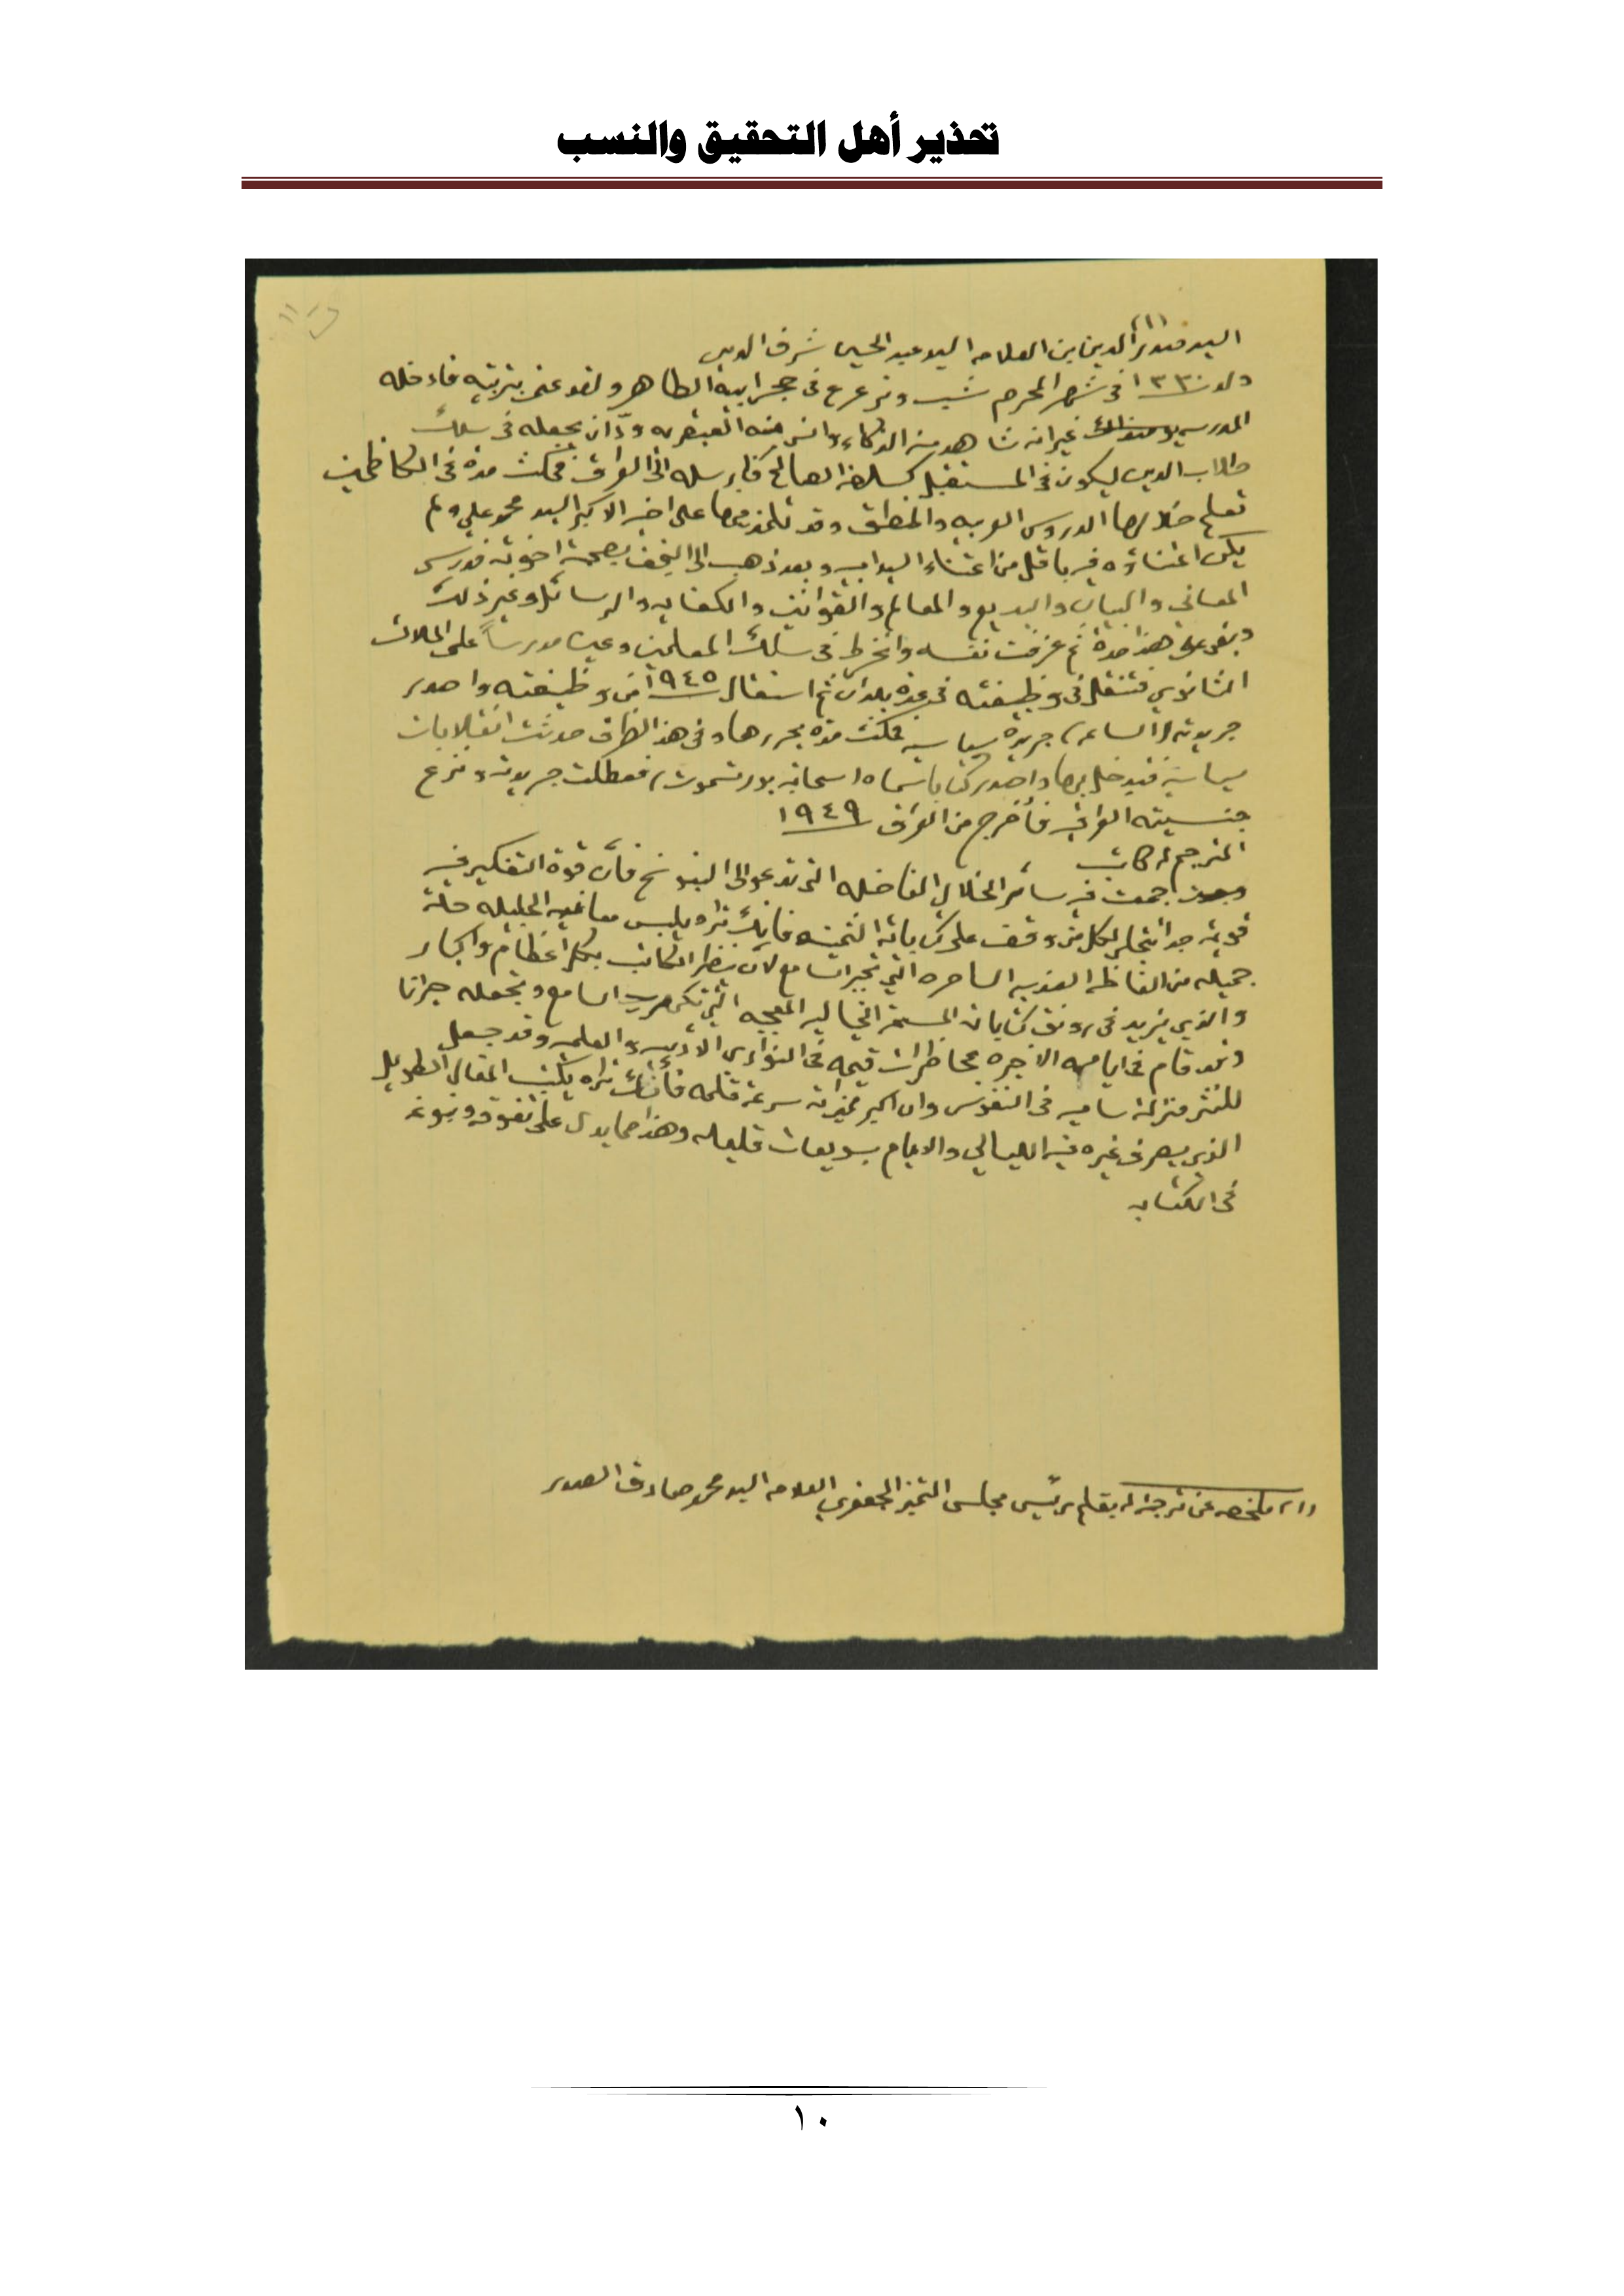 تحذير أهل التحقيق والنسب
(١)
السيد صدر الدين بن العلامه السيد عبد الحسين شرف الدين
ولد سنة ١٣٣٠ في شهر المحرم شب وترعرع في حجر ابيه الطاهر ولقد عني بتربيته فادخله
المدرسه غير انه شاهد منه الذكاء وانس منه العبقريه ودّ ان يجعله في سلك
طلاب الدين ليكون في المستقبل كسلفه الصالح فارسله الى العراق فمكث مدة في الكاظمين
تعلم خلالها الدروس العربيه والمنطق وقد تلمذ معها على اخيه الاكبر السيد محمد علي ولم
يكن اعتناؤه فيه باقل من اعتناء السيد ابيه وبعد ذهب الى النجف بصحبة اخوته فدرس
المعاني والبيان والبديع والمعالم والقوانين والكفايه والرسائل وغير ذلك
وبقي على هذا مدة ثم عزفت نفسه وانخرط في سلك المعلمين وعين مدرساً على الملاك
الثانوي فتنقل في وظيفته في عدة بلدان ثم استقال ١٩٤٥ من وظيفته واصدر
جريدته (الساعه) جريدة سياسيه فمكث مدة يحررها وفي هذا الظرف حدثت انقلابات
سياسية فتدخل بها واصدر كتابا سماه (سحابة بورتسموث) فعطلت جريدته ونزع
جنسيته العراقيه فأخرج من العراق ١٩٤٩
المترجم له كاتب
جمعت فيه سائر الخلال الفاضله التي تدعو الى النبوغ فأن قوة التفكير فيه
قويه جدا تتجلى لكل من وقف على كتاباته الثمينه فانك تراه يلبس معانيه الجليله حلة
جميله من الفاظه العذبه الساحره التي تجبر السامع لان ينظر الكاتب بكل اعظام واكبار
والذي يزيد في رونق كتاباته المسحه الخياليه المعجبه التي تكهرب السامع وتجعله حيرانا
وقد قام في ايامه الاخيره بمحاظرات قيمه في النوادي الأدبيه والعلميه وقد جعل
للنثر منزلة ساميه في النفوس وان اكبر مميزاته سرعة قلمه فأنك تراه يكتب المقال الطويل
الذي يصرف غيره فيه الليالي والايام بسويعات قليله وهذا مما يدل على تفوقه ونبوغه
في الكتابه
(١) ملخصه عن ترجمة له بقلم رئيس مجلس التميز الجعفري العلامه السيد محمد صادق الصدر
١٠